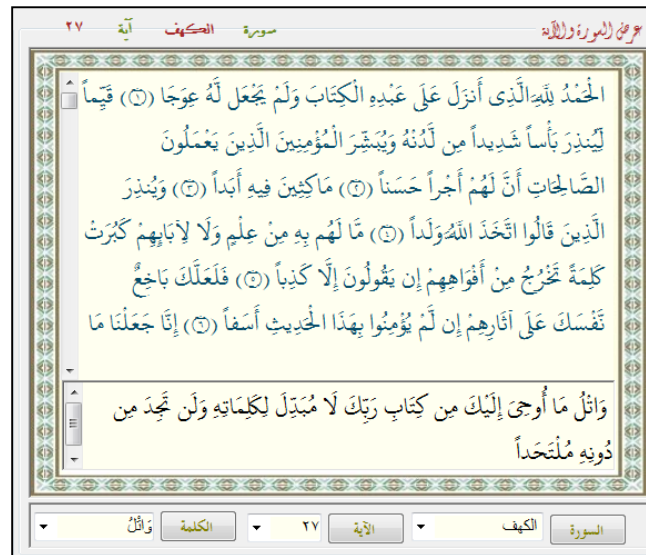 عرض السورة والآية
سورة الكهف آية ٢٧
الْحَمْدُ لِلَّهِ الَّذِى أَنزَلَ عَلَى عَبْدِهِ الْكِتَابَ وَلَمْ يَجْعَل لَّهُ عِوَجَا (١) قَيِّماً
لِّيُنذِرَ بَأْساً شَدِيداً مِن لَّدُنْهُ وَيُبَشِّرَ الْمُؤْمِنِينَ الَّذِينَ يَعْمَلُونَ
الصَّالِحَاتِ أَنَّ لَهُمْ أَجْراً حَسَناً (٢) مَاكِثِينَ فِيهِ أَبَداً (٣) وَيُنذِرَ
الَّذِينَ قَالُوا اتَّخَذَ اللَّهُ وَلَداً (٤) مَّا لَهُم بِهِ مِنْ عِلْمٍ وَلَا لِآبَائِهِمْ كَبُرَتْ
كَلِمَةً تَخْرُجُ مِنْ أَفْوَاهِهِمْ إِن يَقُولُونَ إِلَّا كَذِباً (٥) فَلَعَلَّكَ بَاخِعٌ
نَّفْسَكَ عَلَى آثَارِهِمْ إِن لَّمْ يُؤْمِنُوا بِهَذَا الْحَدِيثِ أَسَفاً (٦) إِنَّا جَعَلْنَا مَا
وَاتْلُ مَا أُوحِىَ إِلَيْكَ مِن كِتَابِ رَبِّكَ لَا مُبَدِّلَ لِكَلِمَاتِهِ وَلَن تَجِدَ مِن
دُونِهِ مُلْتَحَداً
السورة الكهف الآية ٢٧ الكلمة وَاتْلُ